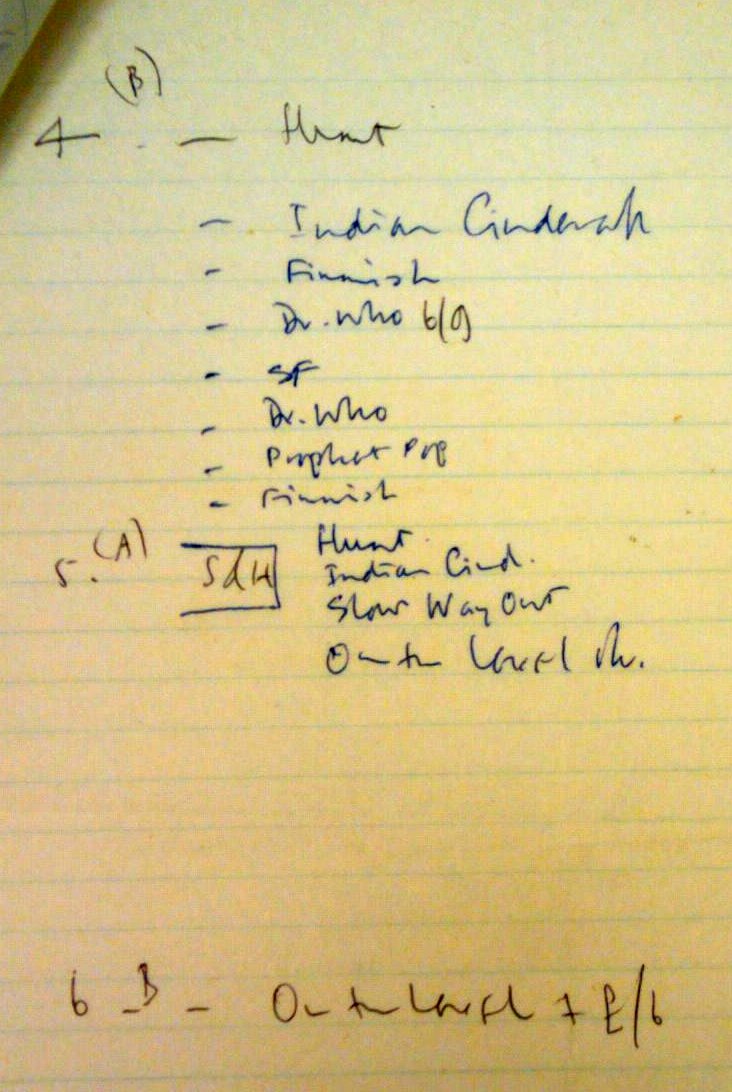 (B)
4 - — Hunt
- Indian Cinderella
- Finnish
- Dr. Who 6/9
- SF
- Dr. Who
- Prophet Pop
- Finnish
5. (A) SdH Hunt
Indian Cind.
Slow Way Out
On the Level
6 - B - On the Level +